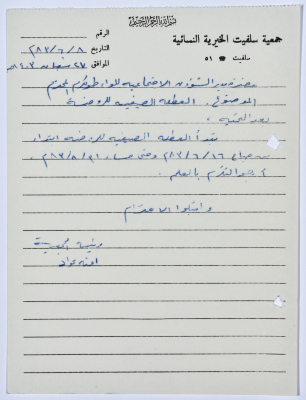 بسم الله الرحمن الرحيم
جمعية سلفيت الخيرية النسائية
سلفيت ☎ ٥١
الرقم
التاريخ ٨ / ٦ / ٩٨٣
الموافق ٢٧ شعبان ١٤٠٣ هـ
حضرة مدير الشؤون الاجتماعية للواء طولكرم المحترم
الموضوع: العطلة الصيفية للروضة
بعد التحية،
تبدأ العطلة الصيفية للروضة ابتداء
من صباح ١٦ / ٦ / ٩٨٣ وحتى مساء ٣١ / ٨ / ٩٨٣،
أرجو التكرم بالعلم.
واقبلوا الاحترام
رئيسة الجمعية